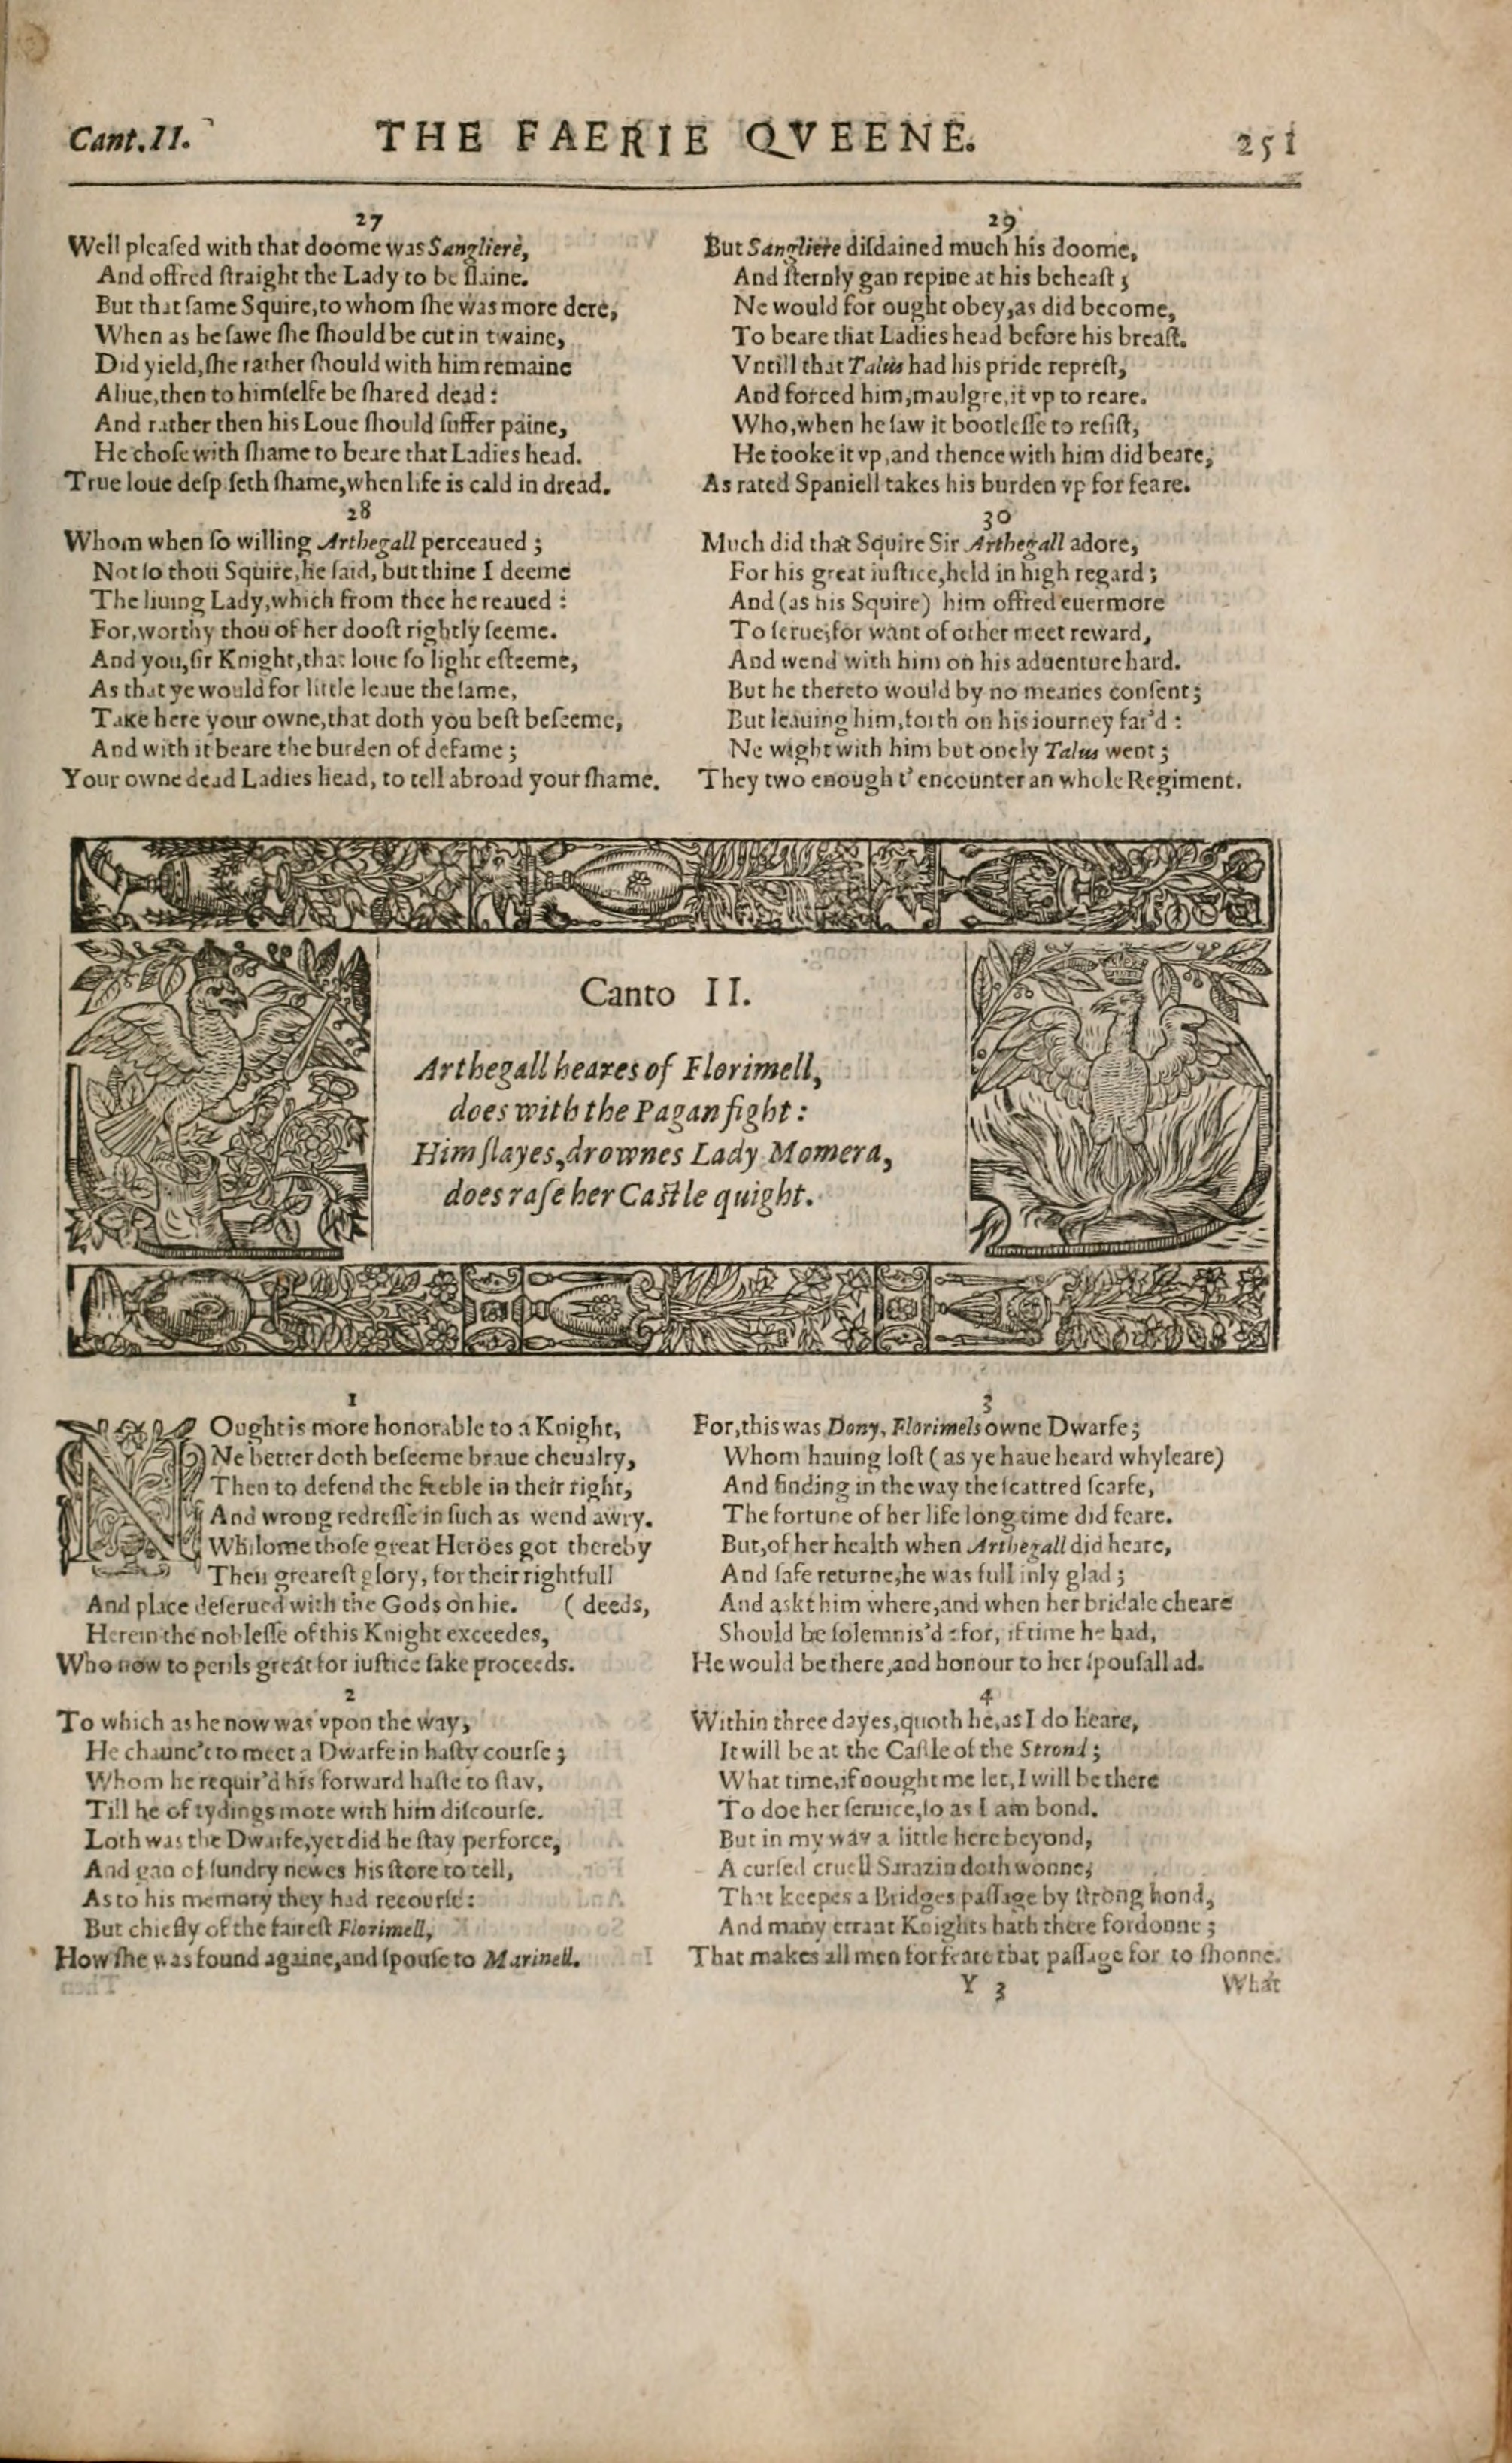 Cant. II.
THE FAERIE QVEENE.
251
27
Well pleaſed with that doome was Sangliere,
And offred ſtraight the Lady to be ſlaine.
But that ſame Squire, to whom ſhe was more dere,
When as he ſawe ſhe ſhould be cut in twaine,
Did yield, ſhe rather ſhould with him remaine
Aliue, then to himſelfe be ſhared dead:
And rather then his Loue ſhould ſuffer paine,
He choſe with ſhame to beare that Ladies head.
True loue deſpiſeth ſhame, when life is cald in dread.
28
Whom when ſo willing Arthegall perceaued;
Not ſo thou Squire, he ſaid, but thine I deeme
The liuing Lady, which from thee he reaued:
For, worthy thou of her dooſt rightly ſeeme.
And you, ſir Knight, that loue ſo light eſteeme,
As that ye would for little leaue the ſame,
Take here your owne, that doth you beſt beſeeme,
And with it beare the burden of defame;
Your owne dead Ladies head, to tell abroad your ſhame.
29
But Sangliere diſdained much his doome,
And ſternly gan repine at his beheaſt;
Ne would for ought obey, as did become,
To beare that Ladies head before his breaſt.
Vntill that Talus had his pride repreſt,
And forced him, maulgre, it vp to reare.
Who, when he ſaw it bootleſſe to reſiſt,
He tooke it vp, and thence with him did beare,
As rated Spaniell takes his burden vp for feare.
30
Much did that Squire Sir Arthegall adore,
For his great iuſtice, held in high regard;
And (as his Squire) him offred euermore
To ſerue, for want of other meet reward,
And wend with him on his aduenture hard.
But he thereto would by no meanes conſent;
But leauing him, forth on his iourney far'd:
Ne wight with him but onely Talus went;
They two enough t' encounter an whole Regiment.
Canto II.
Arthegall heares of Florimell,
does with the Pagan fight:
Him ſlayes, drownes Lady Momera,
does raſe her Caſtle quight.
1
NOught is more honorable to a Knight,
Ne better doth beſeeme braue cheualry,
Then to defend the feeble in their right,
And wrong redreſſe in ſuch as wend awry.
Whilome thoſe great Heröes got thereby
Their greateſt glory, for their rightfull
And place deſerued with the Gods on hie. (deeds,
Herein the nobleſſe of this Knight exceedes,
Who now to perils great for iuſtice ſake proceeds.
2
To which as he now was vpon the way,
He chaunc't to meet a Dwarfe in haſty courſe;
Whom he requir'd his forward haſte to ſtay,
Till he of tydings mote with him diſcourſe.
Loth was the Dwarfe, yet did he ſtay perforce,
And gan of ſundry newes his ſtore to tell,
As to his memory they had recourſe:
But chiefly of the faireſt Florimell,
How ſhe was found againe, and ſpouſe to Marinell.
3
For, this was Dony, Florimels owne Dwarfe;
Whom hauing loſt (as ye haue heard whyleare)
And finding in the way the ſcattred ſcarfe,
The fortune of her life long time did feare.
But, of her health when Arthegall did heare,
And ſafe returne, he was full inly glad;
And askt him where, and when her bridale cheare
Should be ſolemnis'd: for, if time he had,
He would be there, and honour to her ſpouſall ad.
4
Within three dayes, quoth he, as I do heare,
It will be at the Caſtle of the Strond;
What time, if nought me let, I will be there
To doe her ſeruice, ſo as I am bond.
But in my way a little here beyond,
A curſed cruell Sarazin doth wonne,
That keepes a Bridges paſſage by ſtrong hond,
And many errant Knights hath there fordonne;
That makes all men for feare that paſſage for to ſhonne.
Y 3
What